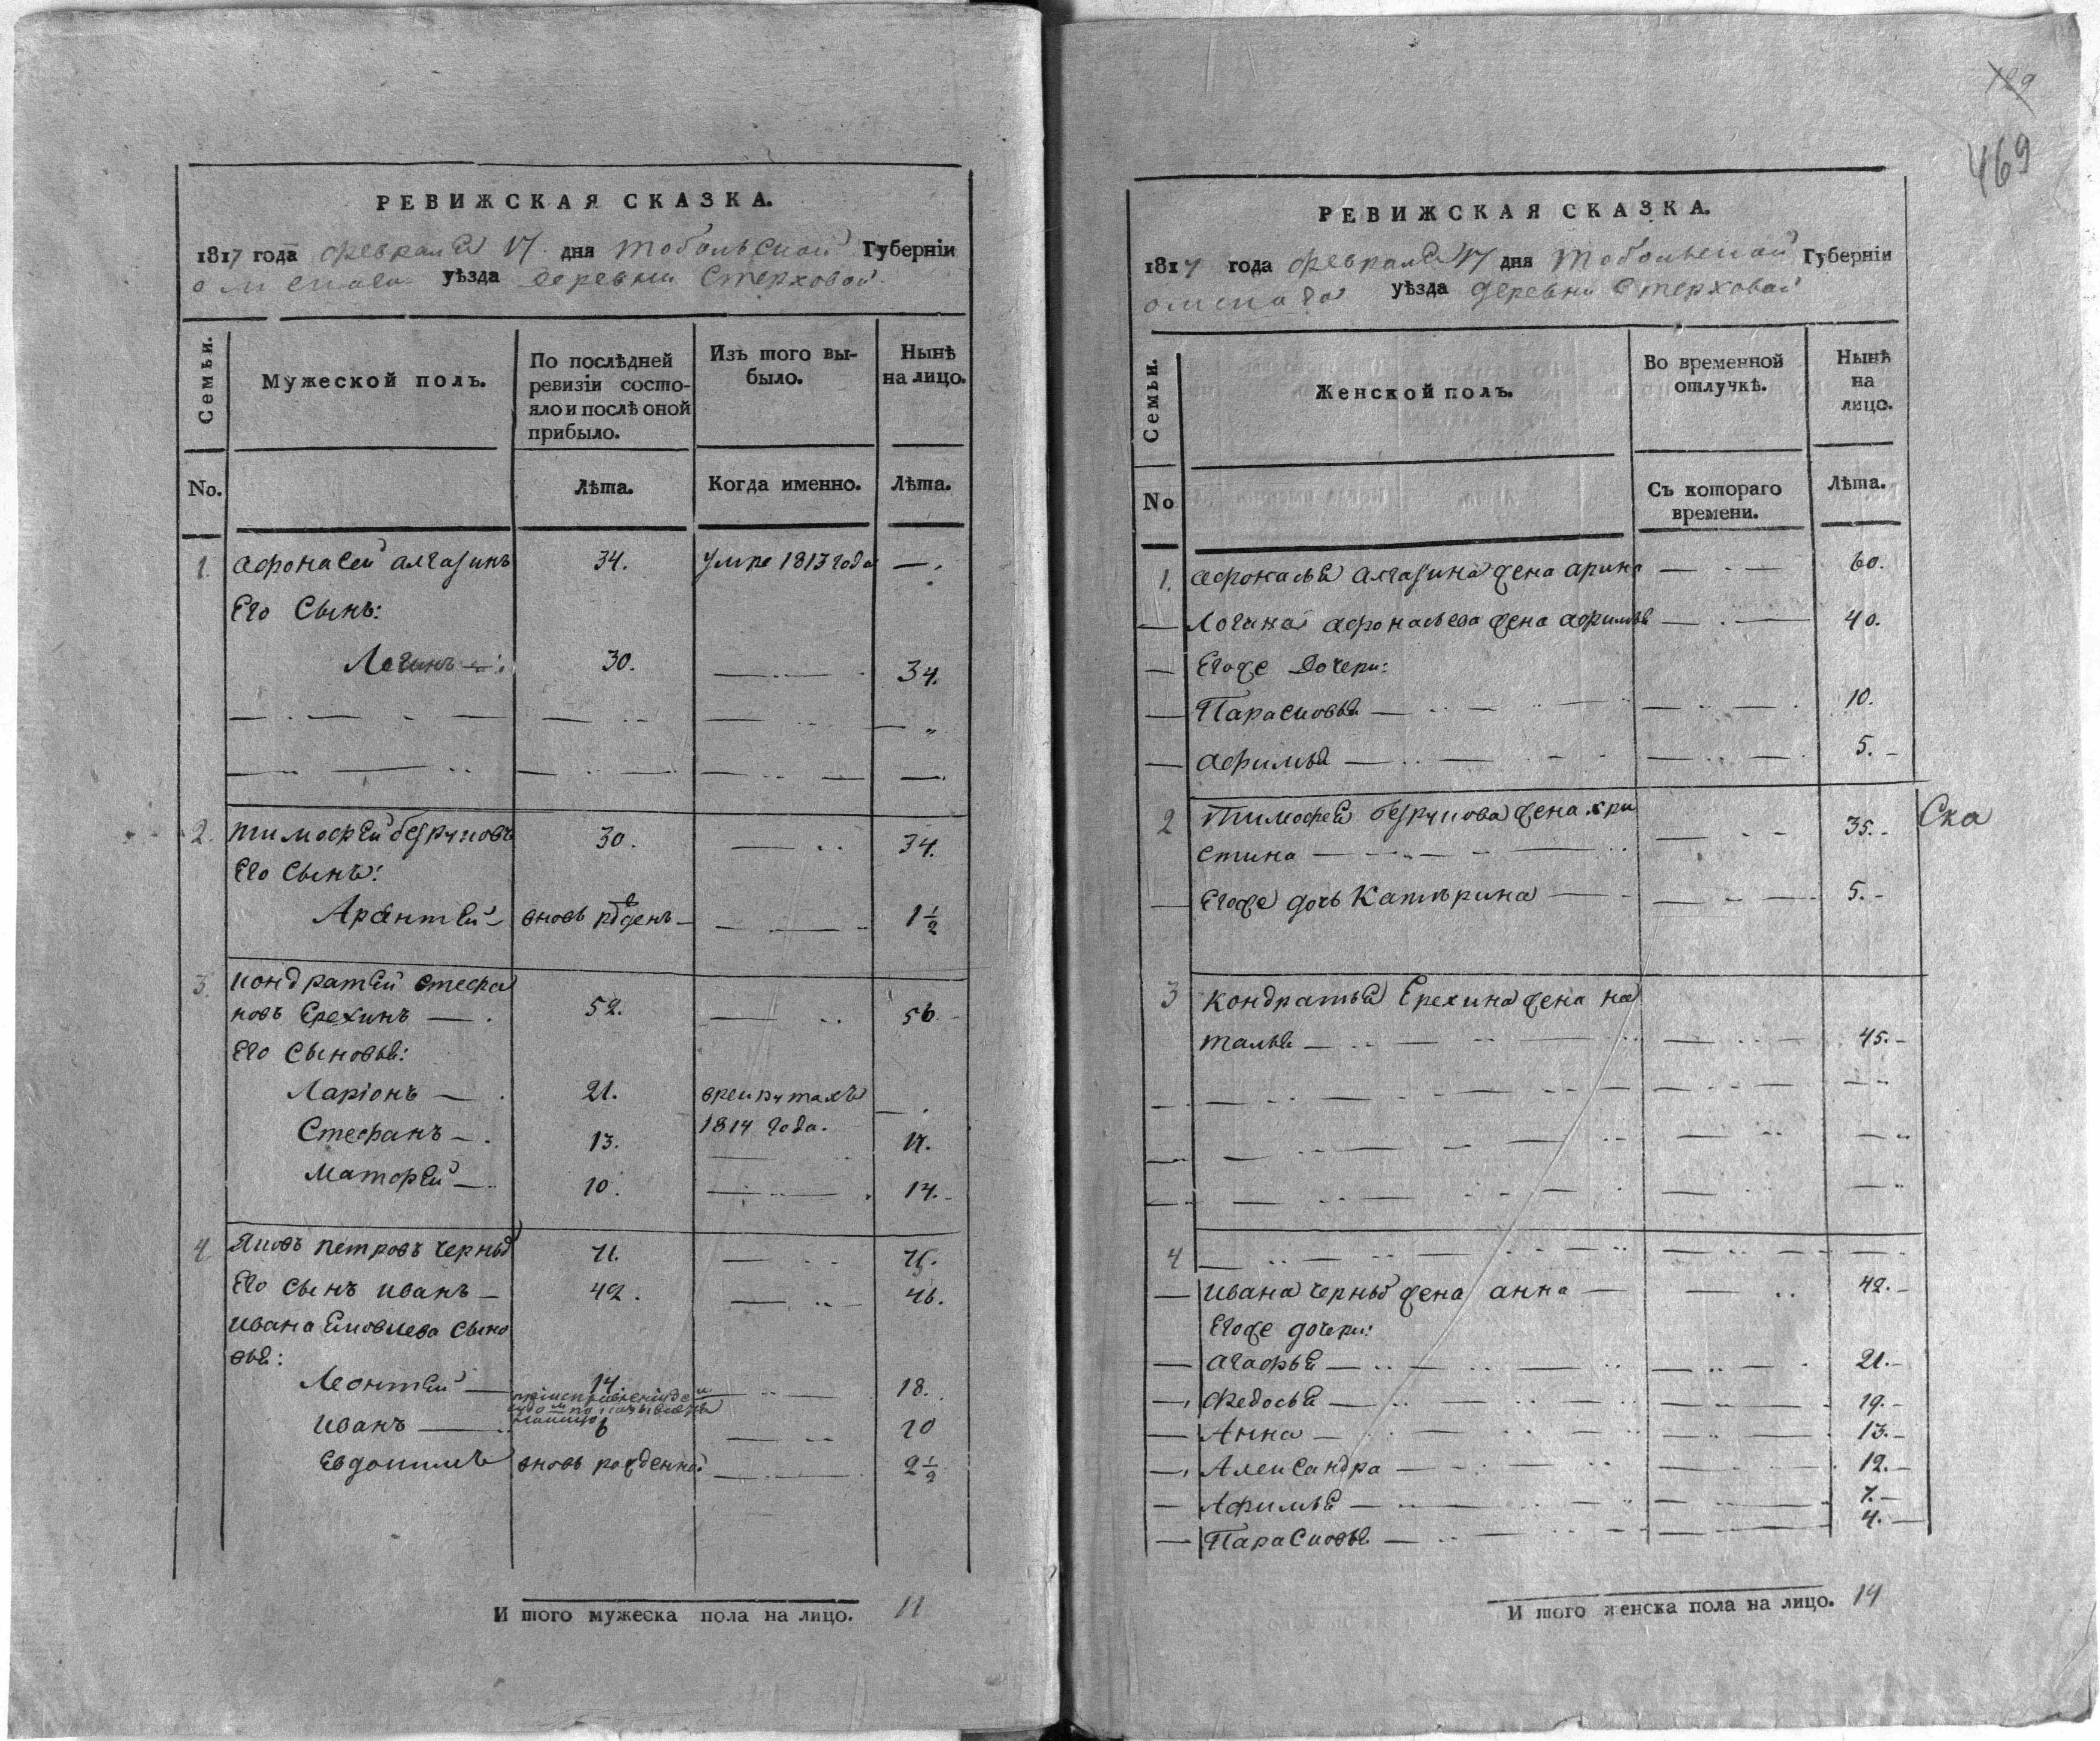 РЕВИЖСКАЯ СКАЗКА.
1817 года февраля 17 дня Тобольской Губерніи
омскаго уѣзда деревни Стерховой
Семьи.
Мужеской полъ.
По послѣдней ревизіи состо-
яло и послѣ оной
прибыло.
Изъ того вы-
было.
Нынѣ
на лицо.
No.
Лѣта.
Когда именно.
Лѣта.
1. Афонасей алгазинъ 34. умре 1813 года —
Его Сынъ:
Логинъ 30. 34.
2. тимофей безруковъ 30. 34.
Его Сынъ:
Арсентей вновь рожденъ 1 1/2
3. кондратей стефа
новъ Ерехинъ 52. 56.
Его Сыновья:
Ларіонъ 21. врекрутахъ
1814 года.
Стефанъ 13. 17.
Матфей 10. 14.
4 Яковъ петровъ черный 71. 75.
Его Сынъ иванъ 42. 46.
ивана Яковлева сыно
вья:
Леонтей 14 18.
иванъ 6 10
Евдокимъ вновь рожденной 2 1/2
И того мужеска пола на лицо. 11
129
469
РЕВИЖСКАЯ СКАЗКА.
1817 года февраля 17 дня Тобольской Губерніи
омскаго уѣзда деревни Стерховой
Семьи.
Женской полъ.
Во временной
отлучкѣ.
Нынѣ
на
лицо.
No
Съ котораго
времени.
Лѣта.
1. Афонасья алгазина жена арина 60.
Логина афонасьева жена афимья 40.
Егоже Дочери:
Парасковья 10.
афимья 5.
2 Тимофея безрукова жена хри
стина 35. Ска
Егоже дочь Катѣрина 5.
3 кондратья Ерехина жена на
талья 45.
4
ивана черныо жена анна 42.
Егоже дочери:
агафья 21.
Федосья 19.
Анна 13.
Александра 12.
Афимья 7.
Парасковья 4.
И того женска пола на лицо. 14